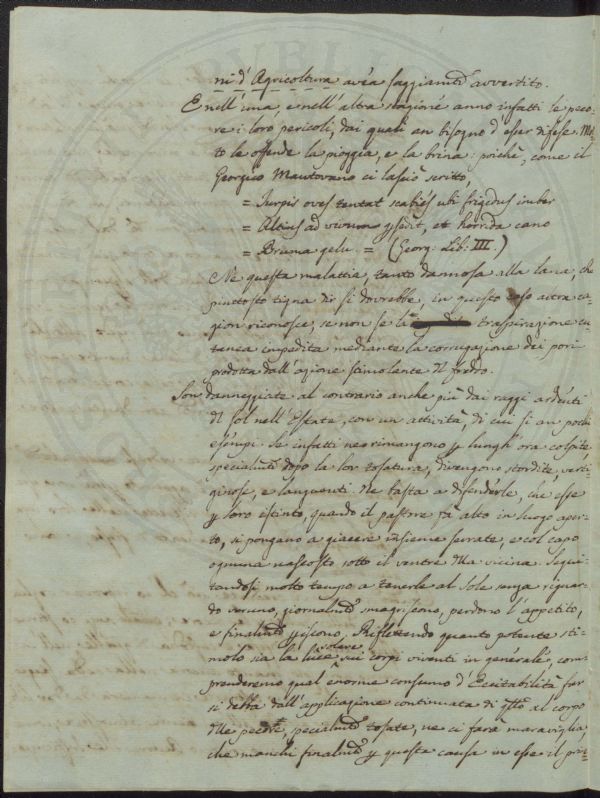 ni d'Agricoltura avéa saggiam.te avvertito.
E nell'una, e nell'altra stagione anno infatti le peco-
re i loro pericoli, dai quali an bisogno d'esser difese. Mol-
to le offende la pioggia, e la brina: poichè, come il
Georgico Mantovano ci lasciò scritto,
= Turpis oves tentat scabiés ubi frigidus imber
= Altius ad vivum psédit, et horrida cano
= Bruma gelu. = (Georg: Lib: III.)
Nè questa malattia, tanto dannosa alla lana, che
piuttosto tigna dir si dovrebbe, in questo caso altra ca-
gion riconosce, se non se la traspirazione cu-
tanea impedita mediante la corrugazione dei pori
prodotta dall'azione stimolante del freddo.
Son danneggiate al contrario anche più dai raggi ardenti
del Sol nell'Estate, con un attività, di cui si an pochi
esémpi. Se infatti ne rimangono p lungh'ora colpite,
specialm.te dopo la lor tosatura, divengono stordite, verti-
ginose, e languenti. Ne basta a difenderle, che esse
p loro istinto, quando il pastore fà alto in luogo aper-
to, si pongano a giacere insieme serrate, e col capo
ognuna nascosto sotto il ventre della vicina. Segui-
tandosi molto tempo a tenerle al Sole senza riguar-
do veruno, giornalm.te smagriscono, perdono l'appetito,
e finalm.te periscono. Riflettendo quanto potente sti-
molo sia la luce solare sui corpi viventi in generale, com-
prenderemo qual enorme consumo d'Eccitabilità far
si debba dall'applicazione continuata di q.sto al corpo
delle pecore, specialm.te tosate, ne ci farà maraviglia,
che manchi finalm.te p questa causa in esse il prin-